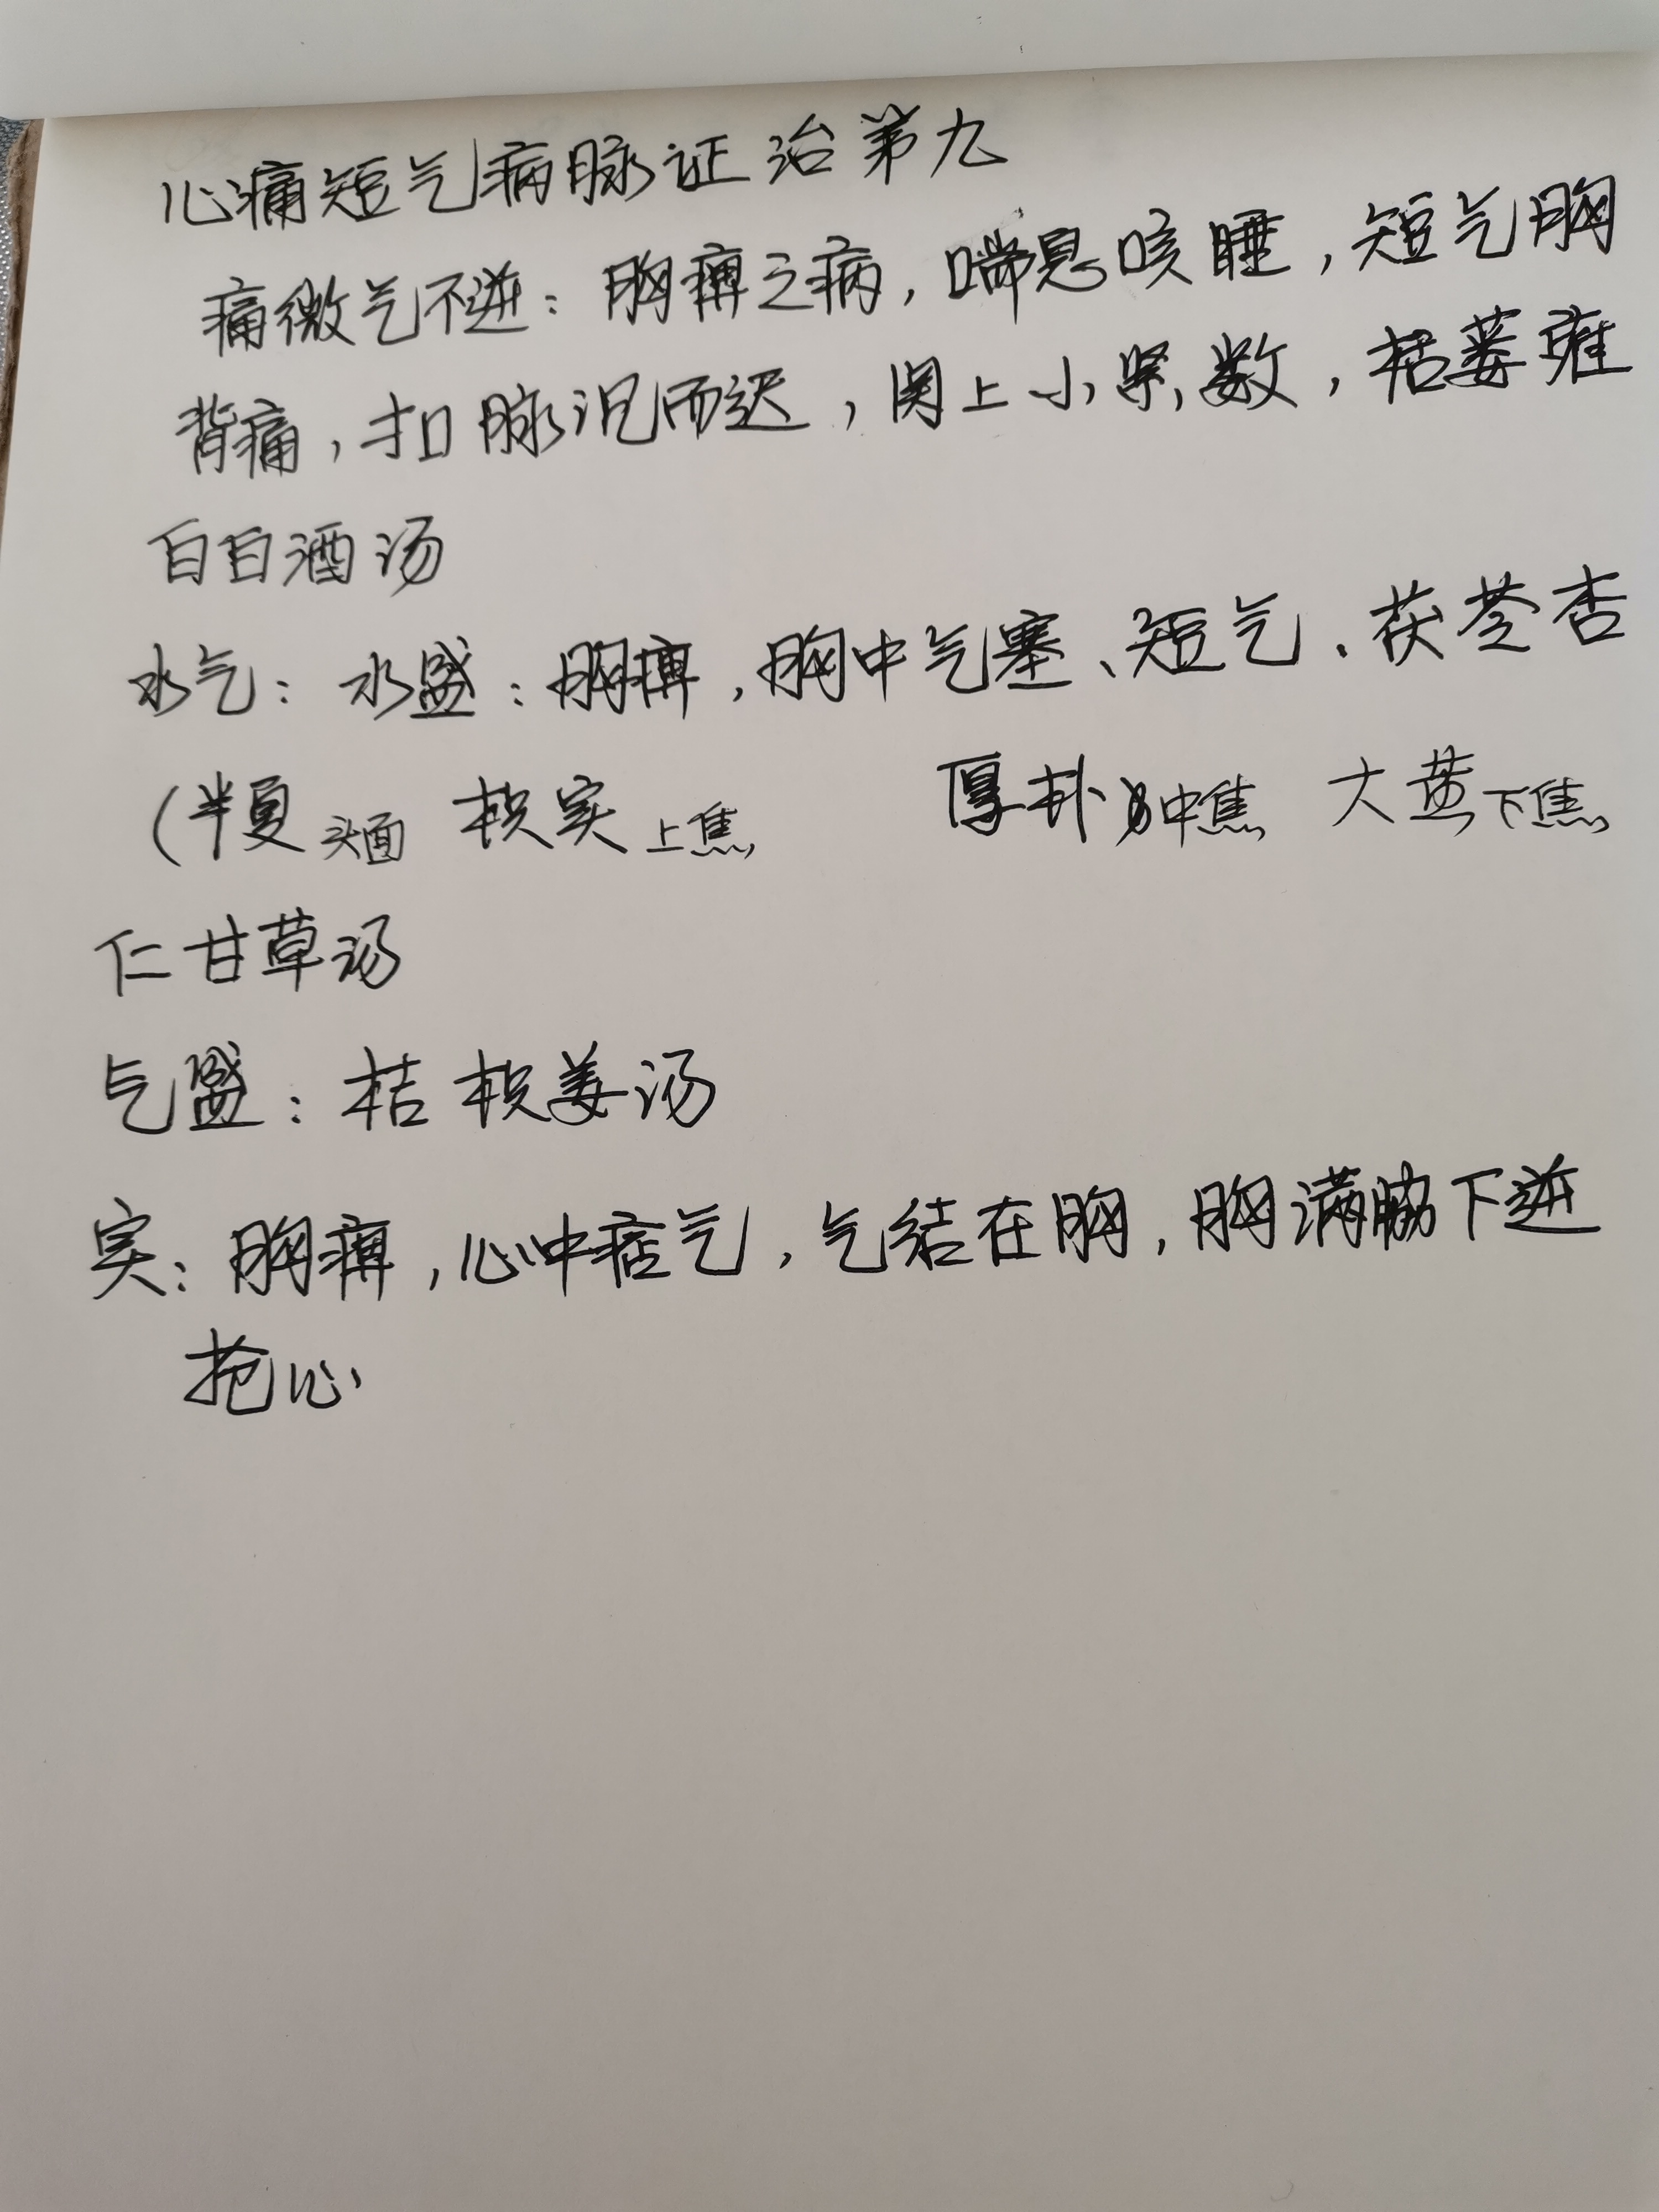 心痛短气病脉证治第九
痛微气不逆：胸痹之病，喘息咳唾，短气胸
背痛，扣脉沉而迟，関上小紧数，栝蒌薤
白白酒汤
水气：水盛：胸痹，胸中气塞、短气．茯苓杏
（半夏头面 枳实上焦 厚朴中焦 大黄下焦
仁甘草汤
气盛：桔枳姜汤
实：胸痹，心中痞气，气结在胸，胸满胁下逆
抢心